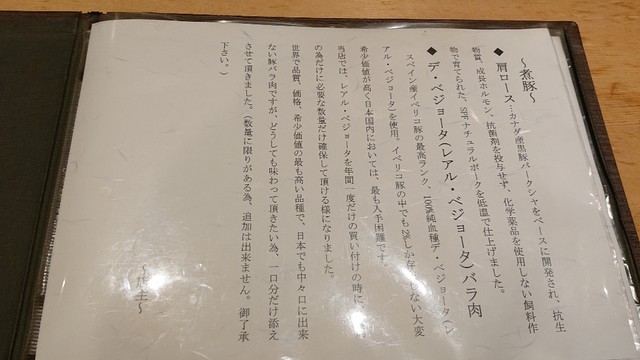 ～煮豚～
◆ 肩ロース…カナダ産黒豚バークシャをベースに開発され、抗生
物質、成長ホルモン、抗菌剤を投与せず、化学薬品を使用しない飼料作
物で育てられた、SPFナチュラルポークを低温で仕上げました。
◆ デ・ベジョータ(レアル・ベジョータ)バラ肉
スペイン産イベリコ豚の最高ランク、100%純血種デ・ベジョータ(レ
アル・ベジョータ)を使用。イベリコ豚の中でも2%しか存在しない大変
希少価値が高く日本国内においては、最も入手困難です。
当店では、レアル・ベジョータを年間一度だけの買い付けの時に
の為だけに必要な数量だけ確保して頂ける様になりました。
世界で品質、価格、希少価値の最も高い品種で、日本でも中々口に出来
ない豚バラ肉ですが、どうしても味わって頂きたい為、一口分だけ添え
させて頂きました。(数量に限りがある為、追加は出来ません。御了承
下さい。)
～店主～